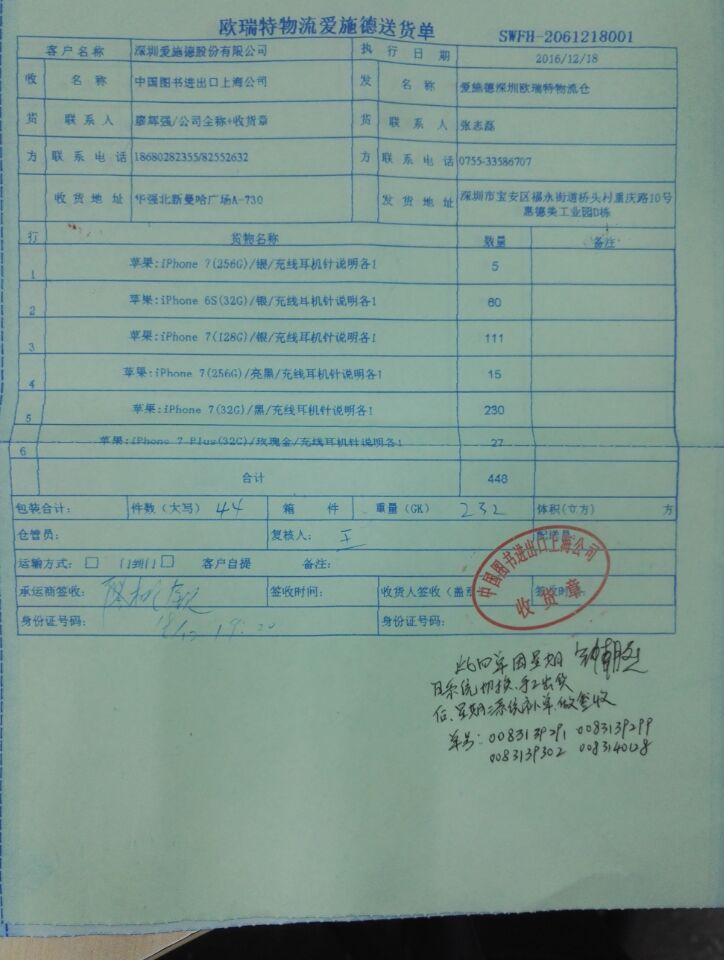 欧瑞特物流爱施德送货单
SWFH-2061218001
客户名称 深圳爱施德股份有限公司 执行日期 2016/12/18
收 名称 中国图书进出口上海公司 发 名称 爱施德深圳欧瑞特物流仓
货 联系人 廖辉强/公司全称+收货章 货 联系人 张志磊
方 联系电话 18680282355/82552632 方 联系电话 0755-33586707
收货地址 华强北新曼哈广场A-730 发货地址 深圳市宝安区福永街道桥头村重庆路10号
惠德美工业园D栋
行 货物名称 数量 备注
1 苹果:iPhone 7(256G)/银/充线耳机针说明各1 5
2 苹果:iPhone 6S(32G)/银/充线耳机针说明各1 60
3 苹果:iPhone 7(128G)/银/充线耳机针说明各1 111
4 苹果:iPhone 7(256G)/亮黑/充线耳机针说明各1 15
5 苹果:iPhone 7(32G)/黑/充线耳机针说明各1 230
6 苹果:iPhone 7 Plus(32G)/玫瑰金/充线耳机针说明各1 27
合计 448
包装合计: 件数（大写） 44 箱 件 重量（GK） 232 体积(立方) 方
仓管员: 复核人: 王 配送员:
运输方式: □ 门到门 □ 客户自提 备注:
承运商签收: 签收时间: 收货人签收（盖章 签收时间:
身份证号码: 18/12 19:20 身份证号码:
中国图书进出口上海公司
收货章
此四单因星期
日系统切换.手工出货
后.星期二系统补单.做签收
单号: 0083139291 0083139299
0083139302 0083140128